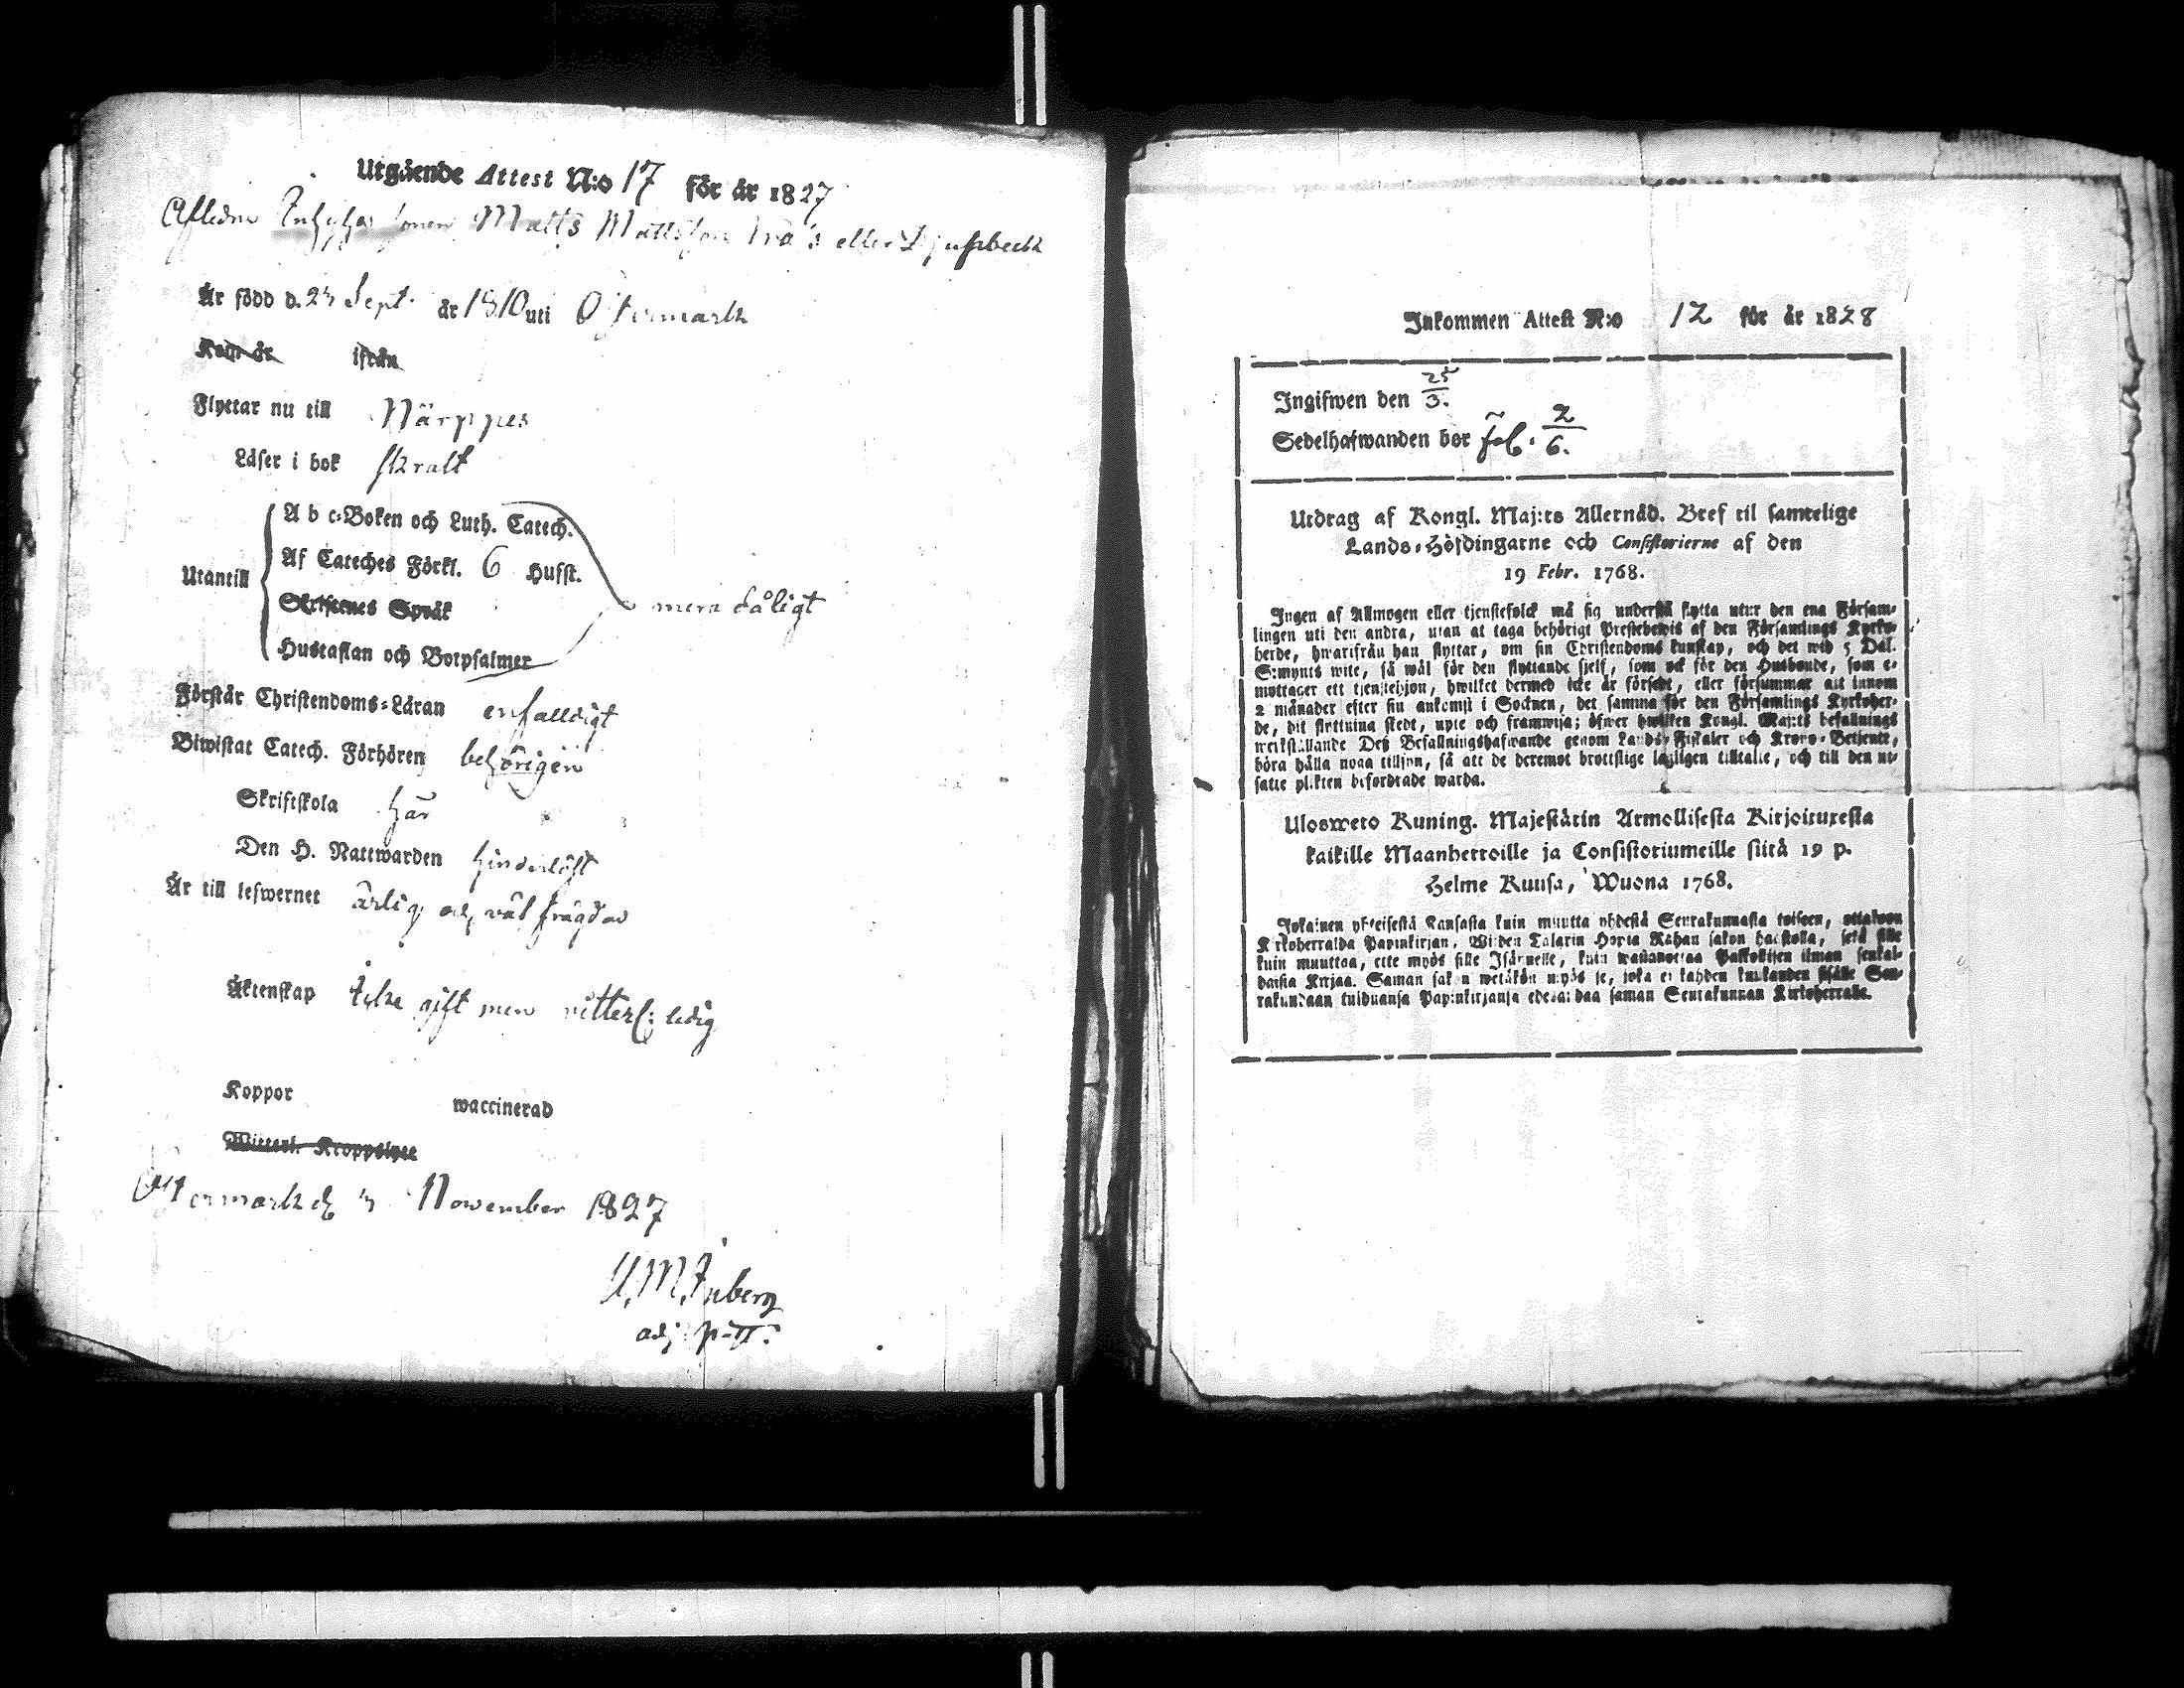 Utgående Attest N:o 17 för år 1827
Afledne Inhyses Sonen Matts Mattsson eller
Är född d. Sept. år 1810 uti Östermark
Kom år ifrån
Flyttar nu till Närppes
Läser i bok skralt
A b c-Boken och Luth. Catech.
Af Cateches Förkl. 6 Hufst.
Utantill
Skriftenes Språk
mera dåligt
Hustaflan och Botpsalmer
Förstår Christendoms-Läran enfalldigt
Biwistat Catech. Förhören behörigen
Skriftskola här
Den H. Nattwarden hinderlöst
Är till lefwernet ärlig och väl frägdad
Äktenskap Icke gift men vitterl: ledig
Koppor waccinerad
Witterl. Kroppslyte
Östermark d. November 1827
adj.
Inkommen Attest N:o 12 för år 1828
Ingifwen den 25/3.
Sedelhafwanden bor fol. 2/6.
Utdrag af Kongl. Maj:ts Allernåd. Bref til samtelige
Lands-Höfdingarne och Consistorierne af den
19 Febr. 1768.
Ingen af Allmogen eller tjenstefolck må sig understå flytta utur den ena Försam-
lingen uti den andra, utan at taga behörigt Prestebewis af den Församlings Kyrko-
herde, hwarifrån han flyttar, om sin Christendoms kunskap, och det wid 5 Dal.
S:mynts wite, så wäl för den flyttande sjelf, som ock för den Husbonde, som e-
mottager ett tjenstehjon, hwilket dermed icke är försedt, eller försummar att innom
2 månader efter sin ankomst i Socknen, det samma för den Församlings Kyrkoher-
de, dit flyttning skedt, upte och framwisa; öfwer hwilken Kongl. Maj:ts befallnings
werkställande Deß Befallningshafwande genom Lands-Fiskaler och Krono-Betjente,
böra hålla noga tillsyn, så att de deremot brottslige lagligen tilltalte, och till den ut-
satte plikten befordrade warda.
Ulosweto Kuning. Majestätin Armollisesta Kirjoituxesta
kaikille Maanherroille ja Consistoriumeille siitä 19 p.
Helme Kuusa, Wuona 1768.
Jokainen yhteisestä Kansasta kuin muutta yhdestä Seurakunnasta toiseen, ottakoon
Kirkoherralda Papinkirjan, Wijden Talarin Hopia Rahan sakon haastolla, sekä sille
kuin muuttaa, ette myös sille Isännelle, kuin wastanottaa Palkollisen ilman senkal-
daista Kirjaa. Saman sakon wetäkön myös se, joka ei kahden kuukauden sisälle Seu-
rakundaan tulduansa Papinkirjansa edesandaa saman Seurakunnan Kirkoherralle.